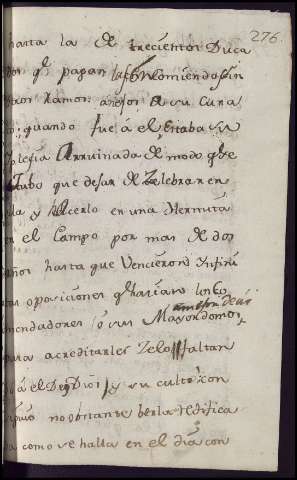 276
hasta la de trecientos Duca
dos q̃ pagan
anejos a su Cura
quando fue a el, Estaba su
Iglesia Arruinada de modo q̃ se
Hubo que dejar de Zelebrar en
lla y hacerlo en una Hermita
en el Campo por mas de dos
años hasta que Vencieron Ynfini
tas oposiciones q̃ hacian los Co
mendadores o sus Mayordomos,
para acreditarles Zelo
a el De Dios y su culto con
no obstante berla redifica
da como se halla en el dia con